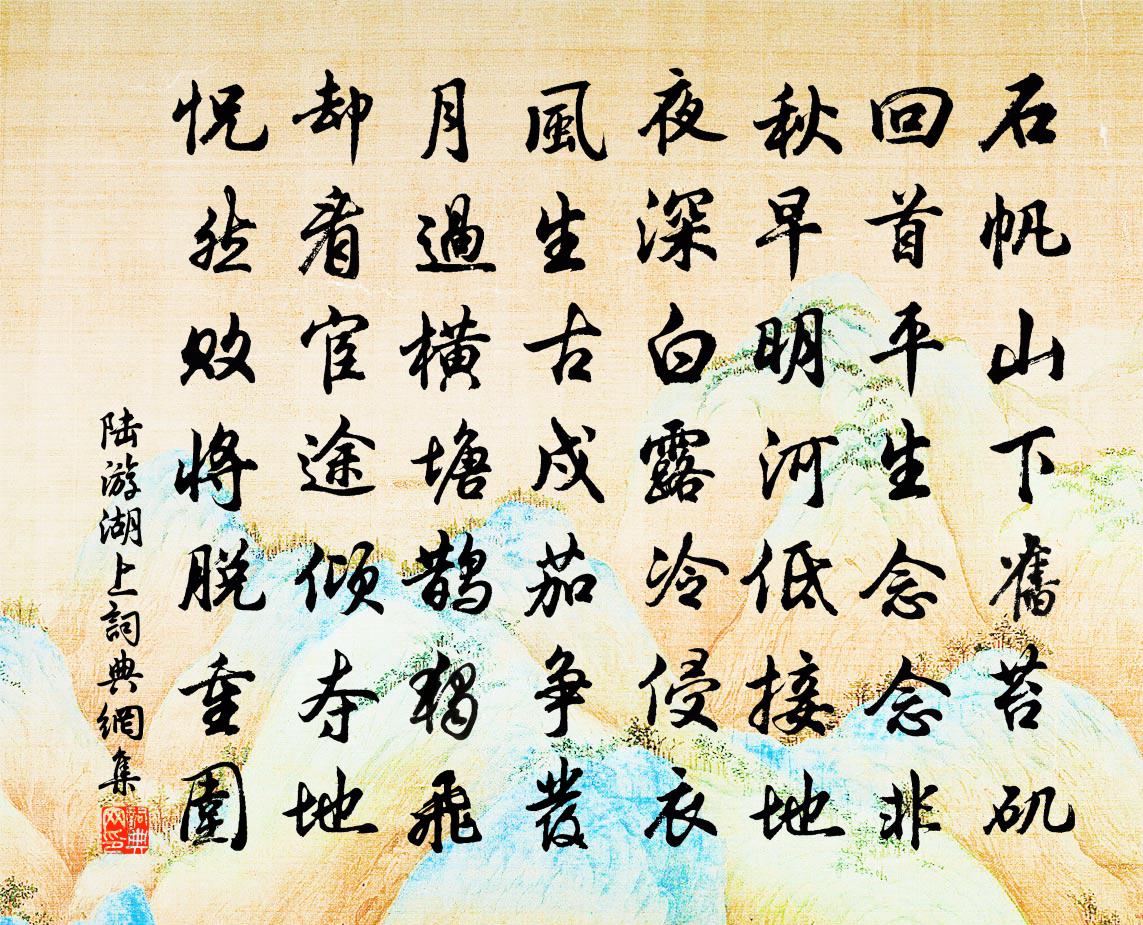 石帆山下舊苔矶
回首平生念念非
秋早明河低接地
夜深白露冷侵衣
風生古戍茄争發
月過横塘鵲獨飛
却看宦途倾夺地
怳然败將脱重圍
陆游湖上詞典網集
詞典网印